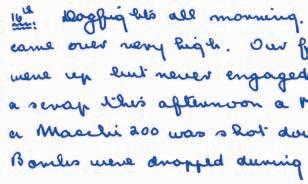 16th Dogfights all morning.
came over very high. Our
were up but never engaged
a scrap this afternoon a
a Macchi 200 was shot
Bombs were dropped during